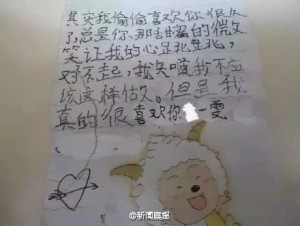 其实我偷偷喜欢你很久
了总是你那甜甜的微
笑让我的心
对不起,我知道我不应
该这样做。但是我
真的很喜欢你 一雯
@新闻晨报